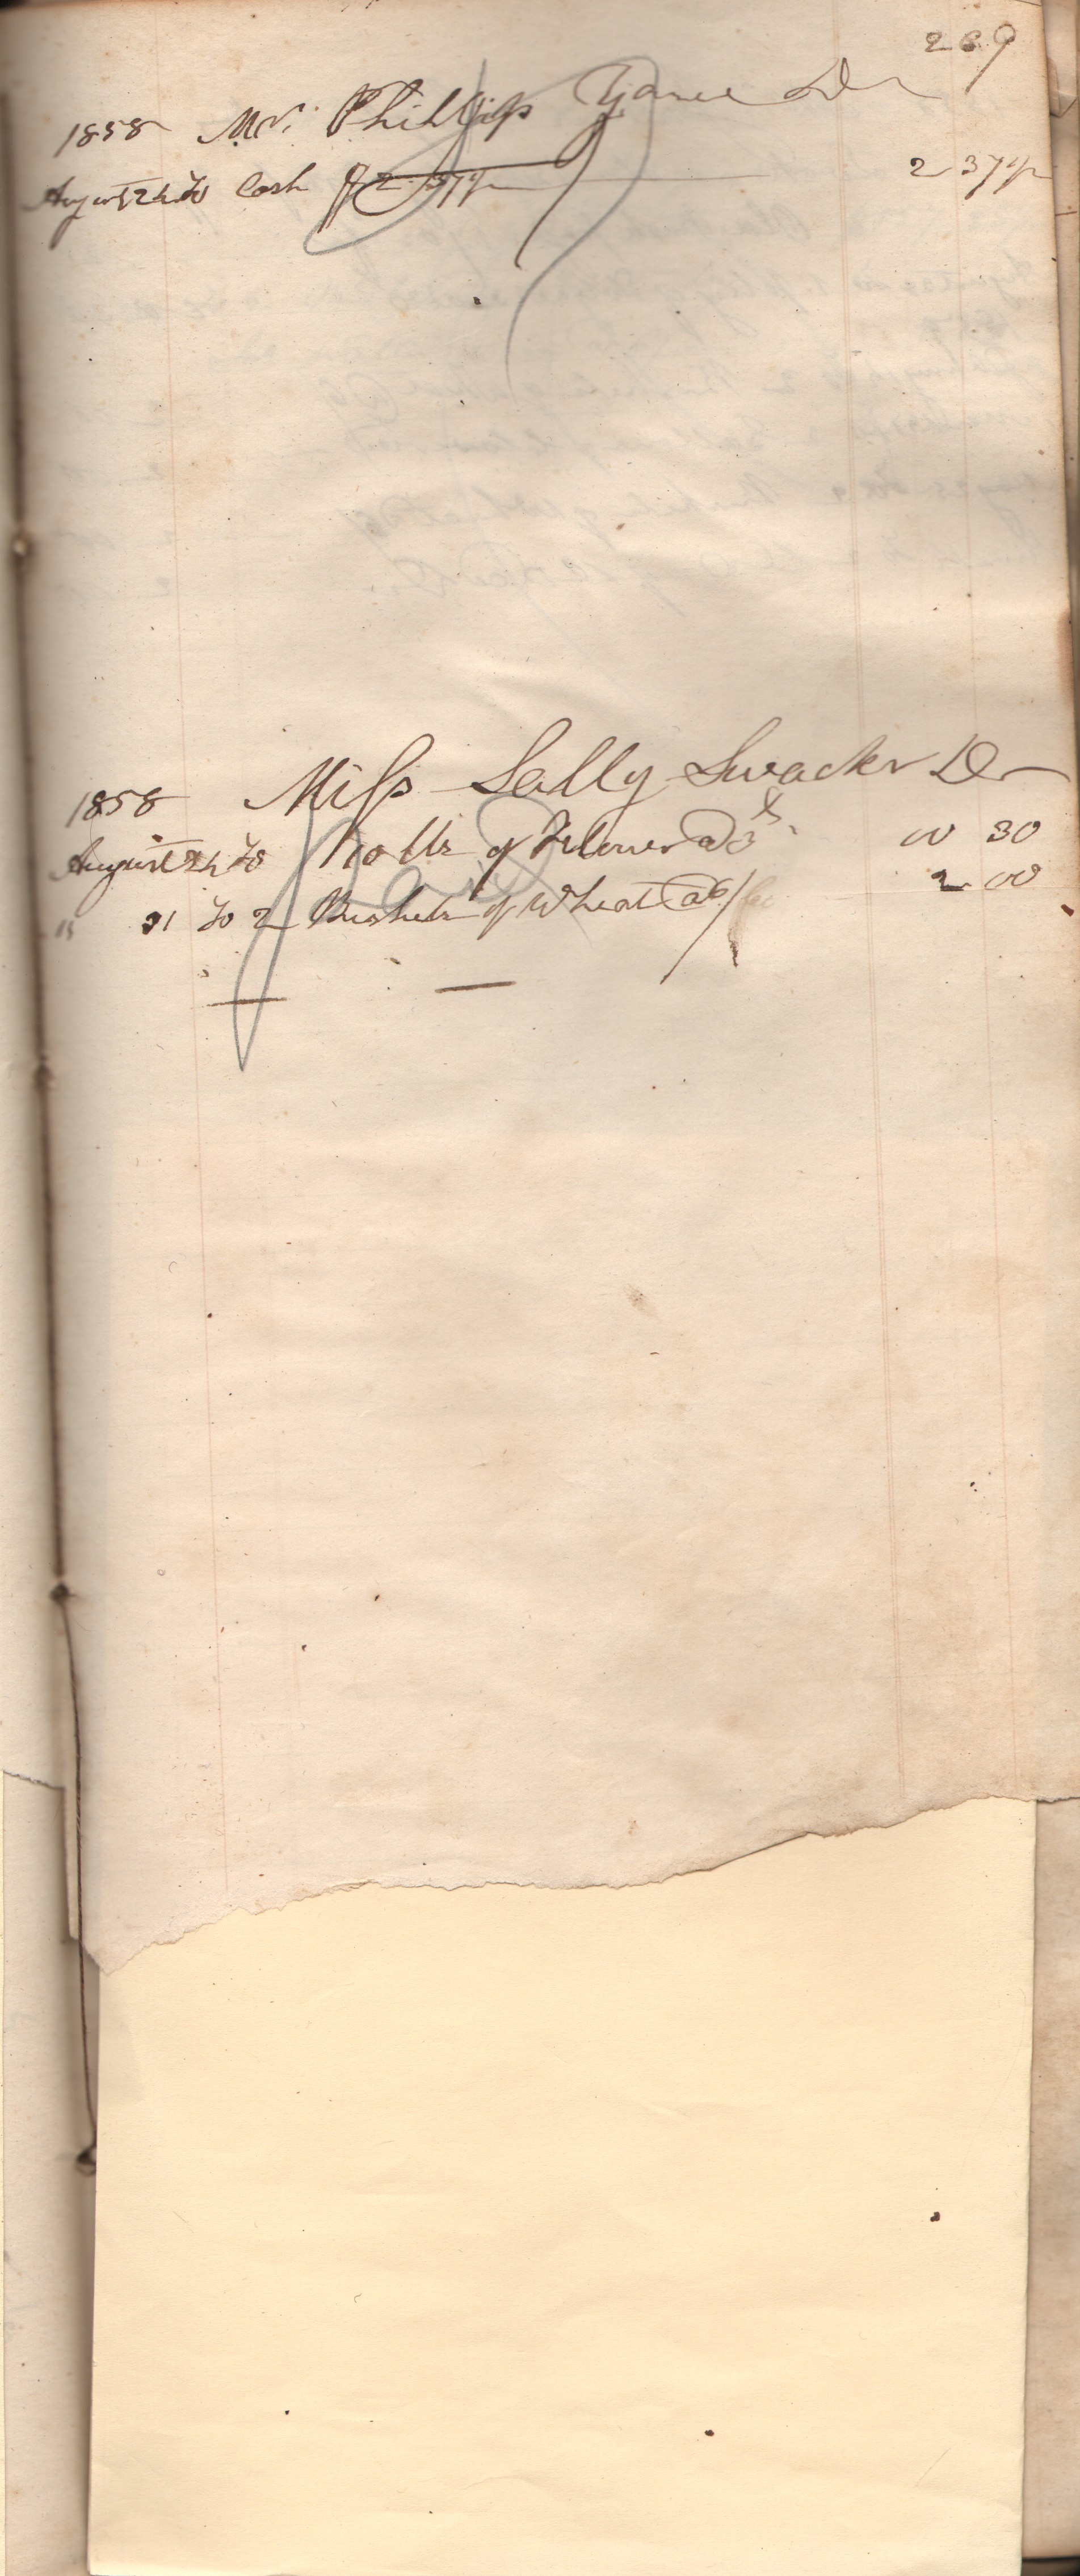 269
1858 Mr. Phillips Yance Dr
August 24 To Cash $2.37½ 2 37½
1858 Miss Sally Swacker Dr
August 24 To 10 lbs of Flower @ 3 cts 00 30
" 31 To 2 Bushels of Wheat @ 6/ 2 00